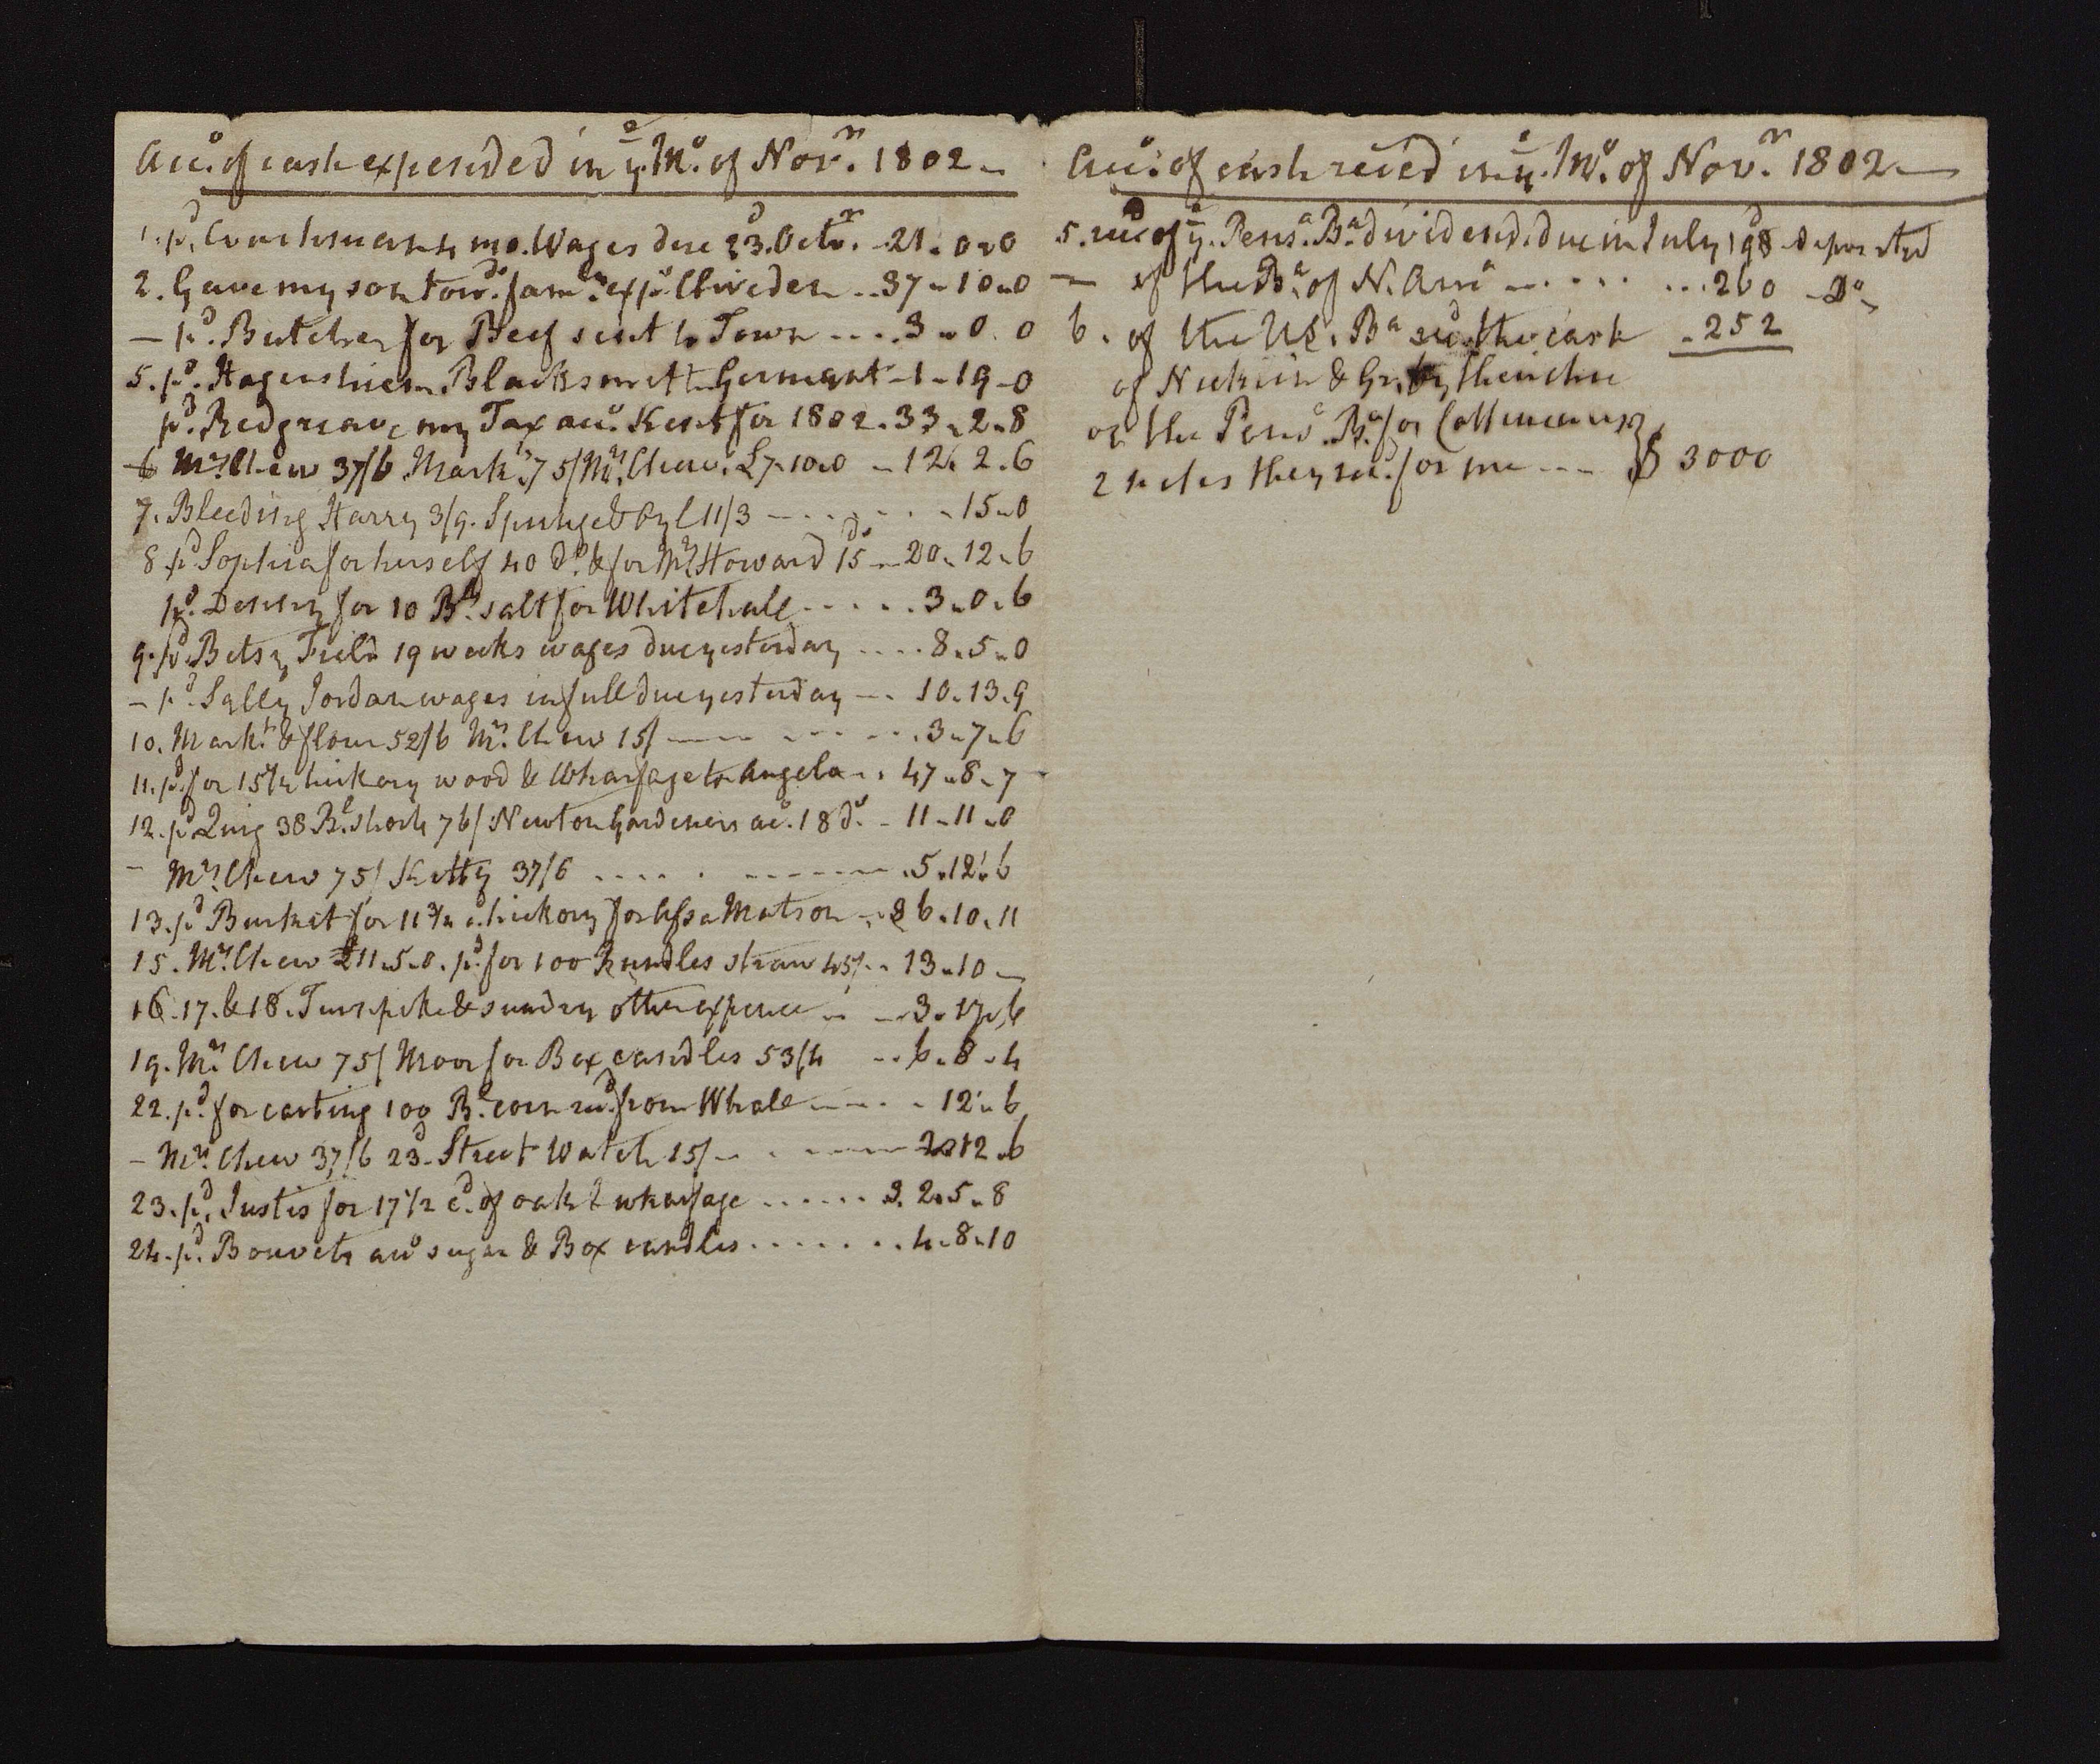 Acco. of cash expended in ye. Mo. of Novr. 1802
1. pd. Coachman 4 mo. Wages due 23d. Octr. 21.0.0
2. Gave my son towds. famly. exps. Cliveden 37.10.0
— pd. Butcher for Beef sent to Town .... 3.0.0
5. pd. Blacksmith Germant 1.19.0
pd. Redgrave my Tax acco. Kent for 1802. 33.2.8
6 Mrs. Chew 37/6. Markt. 75/ Mrs. Chew. £7.10.0 - 12.2.6
7. Bleeding Harry 3/9. Spunge & Oyl 11/3 - - - 15.0
8 pd. Sophia for herself 40 ds. & for Mrs. Howard 15 ds. 20.12.6
pd. Denny for 10 Bs. salt for Whitehall ..... 3.0.6
9. pd. Betsy Field 19 weeks wages due yesterday .... 8.5.0
— pd. Sally Jordan wages in full due yesterday — 10.13.9
10. Markt. & flour 52/6 Mrs. Chew 15/ — — — 3.7.6
11. pd. for 15 1/2 hickory wood & Wharfage to Angelo 47.8.7
12. pd. Quig 38 Bl. shorts 76/ Newton Gardeners ac. 18 do. - 11.11.0
— Mrs. Chew 75/ Kitty 37/6 .... 5.12.6
13. pd. Burket for 11 3/4 c. hickory for Matson 26.10.11
15. Mrs. Chew £11.5.0. pd. for 100 Bundles straw 45/ 13.10
16. 17. & 18. Turnpike & sundry other expence 3.17.6
19. Mrs. Chew 75/ Moor for Box candles 53/4 6.8.4
22. pd. for carting 100 Bl. corn recd. from Whall — 12.6
— Mrs. Chew 37/6 23d. Street Watch 15/ 2.12.6
23. pd. Justis for 17 1/2 cd. of oak & wharfage ..... 2.5.8
24. pd. acco sugar & Box candles ....... 4.8.10
Acco. of cash recied in ye. Mo. of Novr. 1802
5. recd of ye. Pensa. Ba. dividend. due in July 198 deposited
— of the Ba. of N. Ama ..... 260 Do
6. of the US. Ba recd. the cash 252
of Nicklin & Gr. by their check
on the Pensa. Ba. for
2 notes they recd. for me --- $ 3000